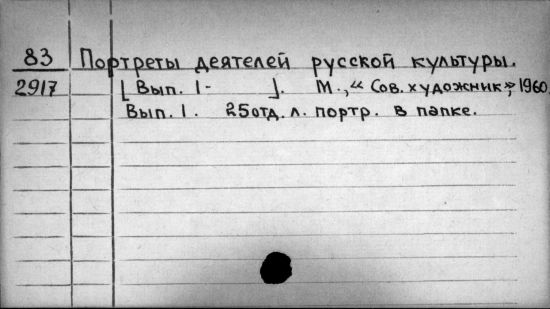 83 Портреты деятелей русской культуры.
2917 [Вып. 1- ]. М., „Сов. художник“, 1960.
Вып. 1. 25 отд. л. портр. в папке.